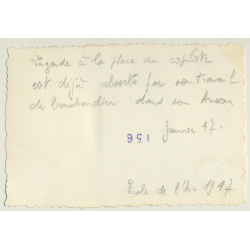 regarde à la place du copilote
est déjà absorbé par son travail
de bombardier dans son Anson
Janvier 47.
156
École de l'Air 1947